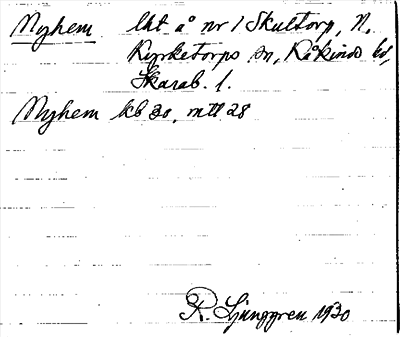 Nyhem lht å nr 1 Skultorp, N.
Kyrketorps sn, Kåkinds hd,
Skarab. l.
Nyhem kb 30, mtl 28
R. Ljunggren 1930